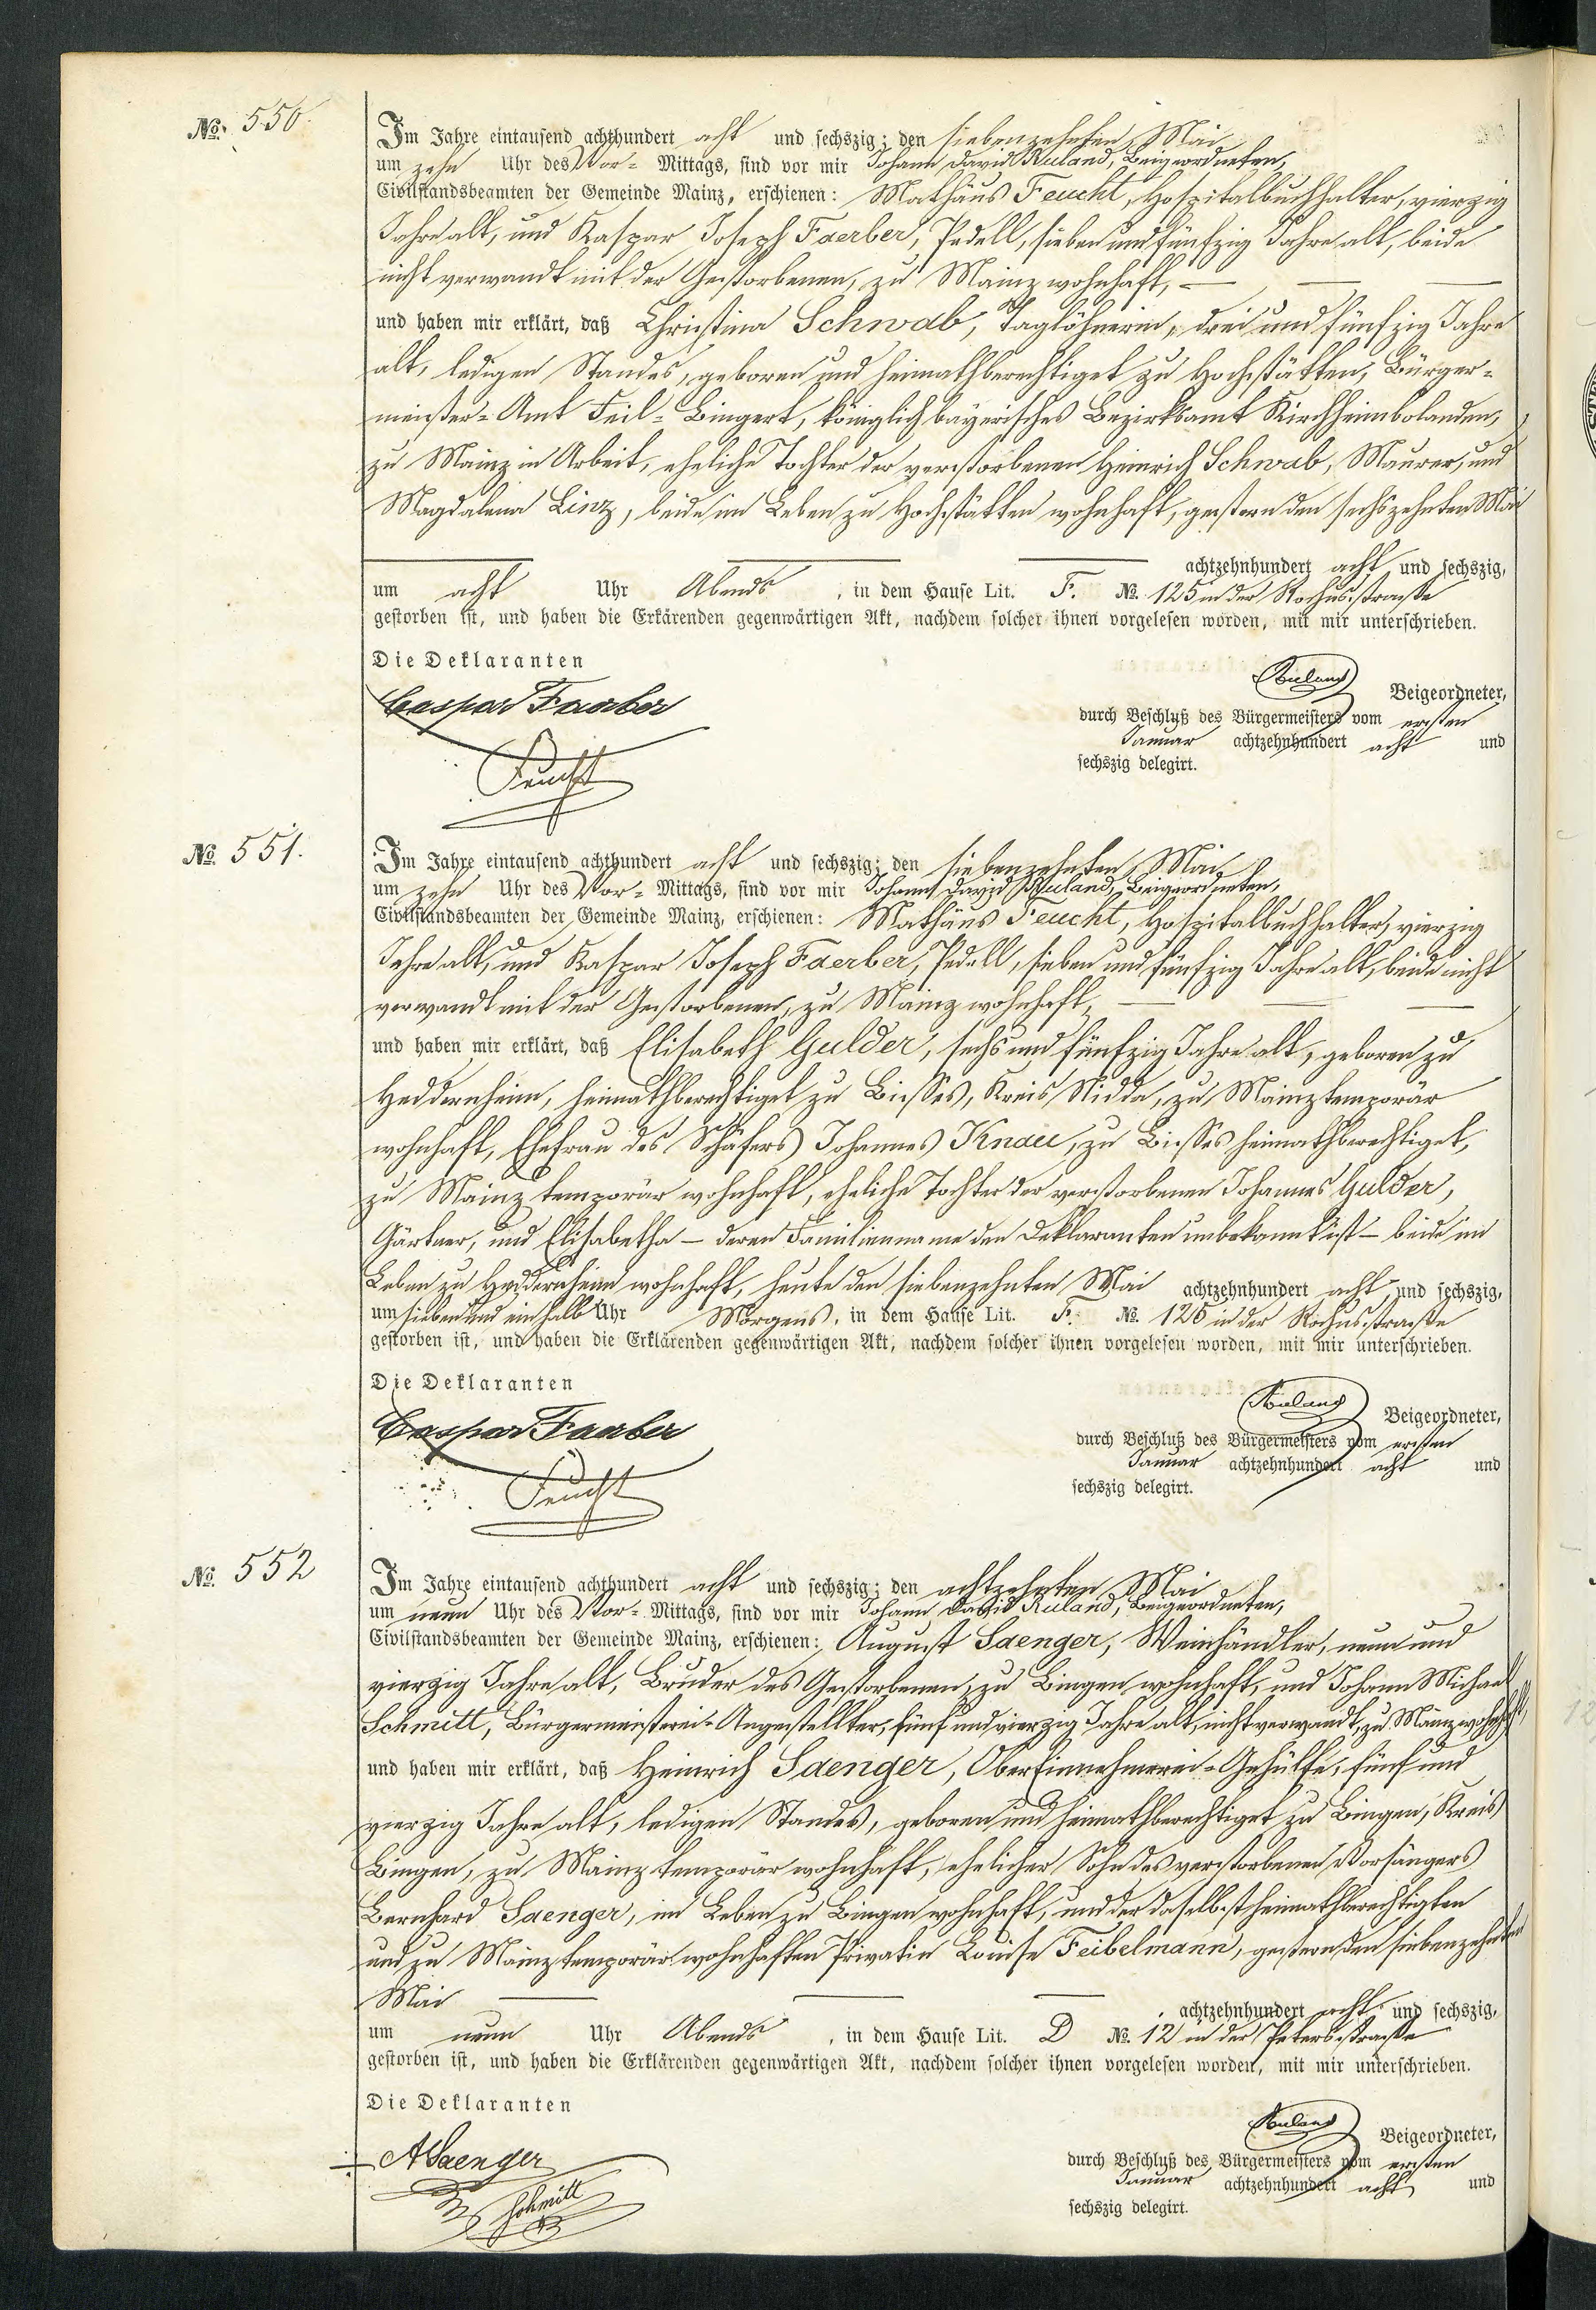 No. 550.
Im Jahre eintausend achthundert acht und sechszig; den siebenzehnten Mai
um zehn Uhr des Vor= Mittags, sind vor mir Johann David Ruland, Beigeordneten,
Civilstandsbeamten der Gemeinde Mainz, erschienen: Mathäus Feucht, Hospitalbuchhalter, vierzig
Jahre alt, und Kaspar Joseph Faerber, Pedell, sieben und fünfzig Jahre alt, beide
nicht verwandt mit der Gestorbenen, zu Mainz wohnhaft, —
und haben mir erklärt, daß Christina Schwab, Taglöhnerin, drei und fünfzig Jahre
alt, ledigen Standes, geboren und heimathberechtiget zu Hochstätten, Bürger=
meister=Amt Feil=Bingert, königlich bayerisches Bezirksamt Kirchheimbolanden,
zu Mainz in Arbeit, eheliche Tochter der verstorbenen Heinrich Schwab, Maurer, und
Magdalena Linz, beide im Leben zu Hochstätten wohnhaft, gestern den sechszehnten Mai
achtzehnhundert acht und sechszig,
um acht Uhr Abends, in dem Hause Lit. F. No. 125 in der Rochusstraße
gestorben ist, und haben die Erkärenden gegenwärtigen Akt, nachdem solcher ihnen vorgelesen worden, mit mir unterschrieben.
Die Deklaranten
Ruland Beigeordneter,
Caspar Faerber
durch Beschluß des Bürgermeisters vom ersten
Januar achtzehnhundert acht und
sechszig delegirt.
Feucht
No. 551.
Im Jahre eintausend achthundert acht und sechszig; den siebenzehnten Mai
um zehn Uhr des Vor= Mittags, sind vor mir Johann David Ruland, Beigeordneten,
Civilstandsbeamten der Gemeinde Mainz, erschienen: Mathäus Feucht, Hospitalbuchhalter, vierzig
Jahre alt, und Kaspar Joseph Faerber, Pedell, sieben und fünfzig Jahre alt, beide nicht
verwandt mit der Gestorbenen, zu Mainz wohnhaft, —
und haben mir erklärt, daß Elisabeth Gulder, sechs und fünfzig Jahre alt, geboren zu
Heddernheim, heimathberechtiget zu Bisses, Kreis Nidda, zu Mainz temporär
wohnhaft, Ehefrau des Schäfers Johannes Knau, zu Bisses heimathberechtiget,
zu Mainz temporär wohnhaft, eheliche Tochter der verstorbenen Johannes Gulder,
Gärtner, und Elisabetha — deren Familienname den Deklaranten unbekannt ist — beide im
Leben zu Heddernheim wohnhaft, heute den siebenzehnten Mai achtzehnhundert acht und sechszig,
um sieben und ein halb Uhr Morgens, in dem Hause Lit. F. No. 125 in der Rochusstraße
gestorben ist, und haben die Erklärenden gegenwärtigen Akt, nachdem solcher ihnen vorgelesen worden, mit mir unterschrieben.
Die Deklaranten
Ruland Beigeordneter,
Caspar Faerber
durch Beschluß des Bürgermeisters vom ersten
Januar achtzehnhundert acht und
sechszig delegirt.
Feucht
No. 552
Im Jahre eintausend achthundert acht und sechszig; den achtzehnten Mai
um neun Uhr des Vor= Mittags, sind vor mir Johann David Ruland, Beigeordneten,
Civilstandsbeamten der Gemeinde Mainz, erschienen: August Saenger, Weinhändler, neun und
vierzig Jahre alt, Bruder des Gestorbenen, zu Bingen wohnhaft, und Johann Michael
Schmitt, Bürgermeisterei=Angestellter, fünf und vierzig Jahre alt, nicht verwandt, zu Mainz wohnhaft,
und haben mir erklärt, daß Heinrich Saenger, Obereinnehmerei=Gehülfe, fünf und
vierzig Jahre alt, ledigen Standes, geboren und heimathberechtiget zu Bingen, Kreis
Bingen, zu Mainz temporär wohnhaft, ehelicher Sohn des verstorbenen Vorsängers
Bernhard Saenger, im Leben zu Bingen wohnhaft, und der daselbst heimathberechtigten
und zu Mainz temporär wohnhaften Privatin Louise Feibelmann, gestern den siebenzehnten
Mai achtzehnhundert acht und sechszig,
um neun Uhr Abends, in dem Hause Lit. D No. 12 in der Petersstraße
gestorben ist, und haben die Erklärenden gegenwärtigen Akt, nachdem solcher ihnen vorgelesen worden, mit mir unterschrieben.
Die Deklaranten
Ruland Beigeordneter,
ASaenger
durch Beschluß des Bürgermeisters vom ersten
Januar achtzehnhundert acht und
sechszig delegirt.
Schmitt